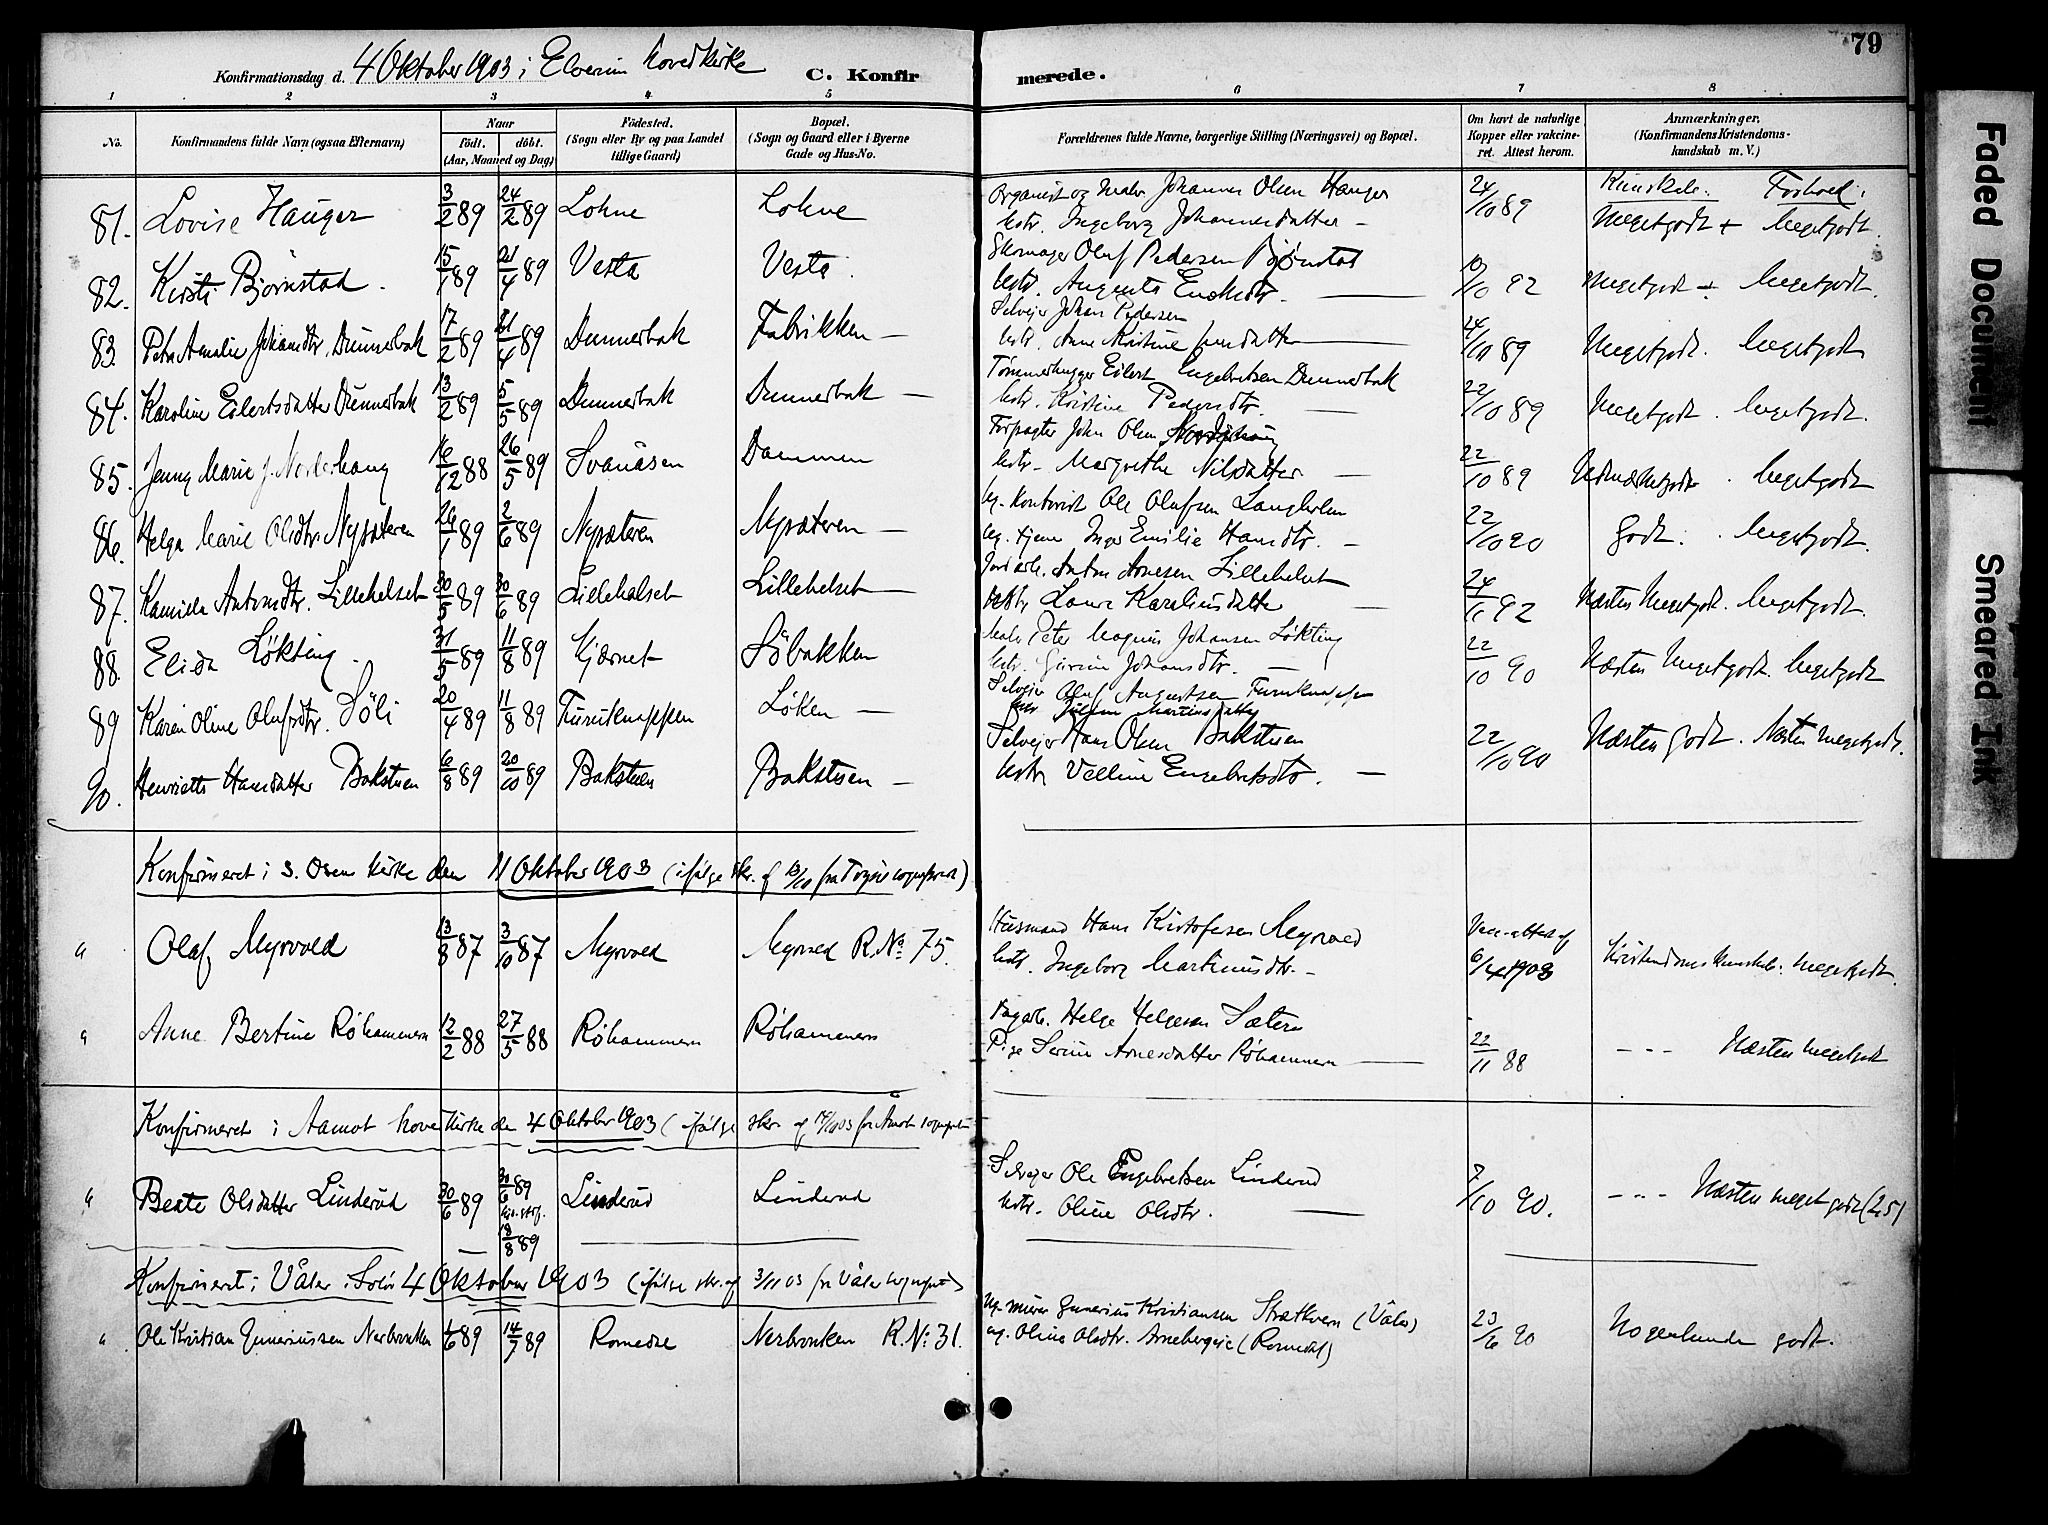 79
Konfirmationsdag d. 4 Oktober 1903 i Elverum Hovedkirke C. Konfirmerede.
1 2 3 4 5 6 7 8
No. Konfirmandens fulde Navn (ogsaa Efternavn) Naar födt. döbt. (Aar, Maaned og Dag) Födested. (Sogn eller By og paa Landet tillige Gaard) Bopæl. (Sogn og Gaard eller i Byerne Gade og Hus-No. Forældrenes fulde Navne, borgerlige Stilling (Næringsvei) og Bopæl. Om havt de naturlige Kopper eller vakcineret. Attest herom. Anmærkninger. (Konfirmandens Kristendomskundskab m. V.)
81. Lovise Hauger 3/2 89 24/2 89 Lohne Lohne Organist og Maler Johannes Olsen Hauger 24/10 89 Kundskab: Forhold:
Hstr. Ingeborg Johannesdatter - Megetgodt + Megetgodt.
82. Kirsti Bjørnstad. 15/1 89 21/4 89 Vesta Vesta. Skomager Oluf Pedersen Bjørnstad
Hstr. Augusta 10/10 92 Megetgodt + Megetgodt.
83. Petra Amalie Johansdtr. Dunnerbak 17/2 89 21/4 89 Dunnerbak Fabrikken — Selveier Johan Pedersen
Hstr. Anne Kristine 24/10 89 Megetgodt. Megetgodt
84. Karoline Eilertsdatter Dunnerbak 13/2 89 5/5 89 Dunnerbak Dunnerbak — Tømmerhugger Eilert Engebretsen Dunnerbak
Hstr. Kristine Pedersdtr. — 22/10 89 Megetgodt. Megetgodt.
85. Jenny Marie J. Norderhaug 16/12 88 26/5 89 Svenåsen Dammen Forpagter John Olsen
Hstr. Margrethe Nilsdatter — 22/10 89 Udmærketgodt. Megetgodt
86. Helga Marie Olsdtr. Nysæteren 26/1 89 2/6 89 Nysæteren Nysæteren — Ug. Kontorist Ole Olufsen Langholen
Ug. tjene Inger Emilie Hansdtr. — 22/10 90 Godt. Megetgodt.
87. Kamilla Antonsdtr. Lillehelset 30/5 89 30/6 89 Lillehelset Lillehelset — Jordarb. Anton Arnesen Lillehelset
Hstr. Laura Karoliusdatter — 24/11 92 Næsten Megetgodt. Megetgodt.
88. Elida Løkting. 31/5 89 11/8 89 Kjernet Söbakken Maler Peter Magnus Johansen Løkting
Hstr. Gurine Johansdtr. — 22/10 90 Næsten Megetgodt. Megetgodt
89 Karen Oline Olufsdtr. Söli 20/4 89 11/8 89 Furuknappen Løken — Selveier Oluf Augustsen Furuknappen
90. Henriette Hansdatter Bakstuen 6/8 89 20/10 89 Bakstuen Bakstuen — Selveier Hans Olsen Bakstuen 22/10 90 Næsten godt. Næsten megetgodt.
Hstr. Velline Engebretsdtr. —
Konfirmeret i S. Osen Kirke den 11 Oktober 1903 (ifølge skr. af 13/10 fra Trysil sognepræst)
" Olaf Myrvold 13/8 87 3/10 87 Myrvold Myrvold R.No. 75. Husmand Hans Kristofersen Myrvold
Hstr. Ingeborg Martinusdtr. - Vacc. attest af 6/4 1903 Kristendomskundskab: Megetgodt.
" Anne Bertine Røhammeren 12/2 88 27/5 88 Røhammern Røhammeren Dagarb. Helge Helgesen Sætern
Pige Serine Arnesdatter Røhammern — 22/11 88 --- Næsten megetgodt
Konfirmeret i Aamot hovedkirke den 4 Oktober 1903 (ifølge skr. af 14/10 03 fra Åmot sognepræst
" Beate Olsdatter Linderud 30/6 89 30/6 89 hje. stdf. 18/8 89 Linderud Linderud Selveier Ole Engebretsen Linderud
Hstr. Oline Olsdtr. — 7/10 90. --- Næsten meget godt (2,5)
Konfirmeret i Våler i Solør 4 Oktober 1903 (ifølge skr. af 3/11 03 fra Våler sognepr.)
" Ole Kristian Gunerиussen Nerbronken 1/6 89 14/7 89 Romedal Nerbronken R.No: 31. Ug. murer Gunerius Kristiansen Strætkvern (Våler) 23/6 90 Nogenlunde godt.
ug. Olina Olsdtr. Arnebergeie (Romedal)
Faded Document
Smeared Ink